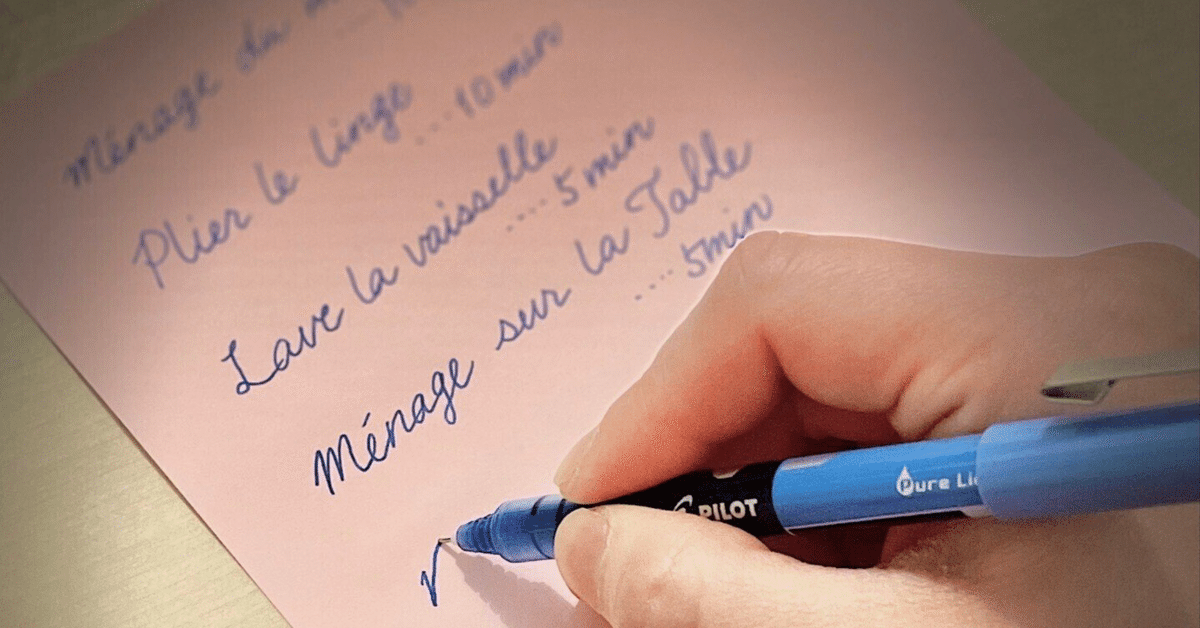 Ménage du
Plier le linge
....10 min
Lave la vaisselle
....5 min
Ménage sur la Table
....5min
PILOT
Pure Li